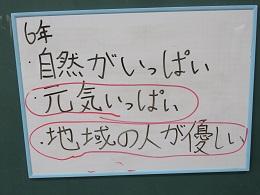 6年
・自然がいっぱい
・元気いっぱい
・地域の人が優しい